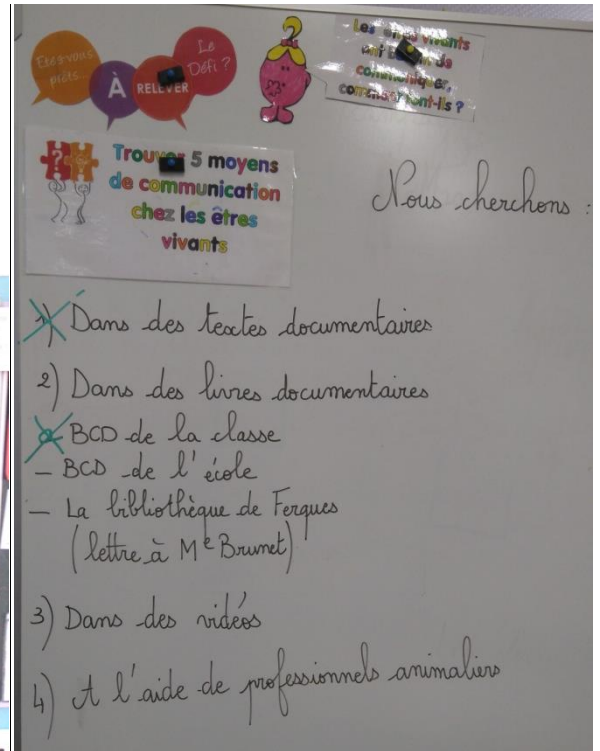 Êtes-vous
prêts
À
RELEVER
Le
Défi ?
Les vivants
de
communiquer,
font-ils ?
Trouver 5 moyens
de communication
chez les êtres
vivants
Nous cherchons :
1) Dans des textes documentaires
2) Dans des livres documentaires
- BCD de la classe
- BCD de l'école
- La bibliothèque de Ferques
(lettre à Me Brunet)
3) Dans des vidéos
4) A l'aide de professionnels animaliers